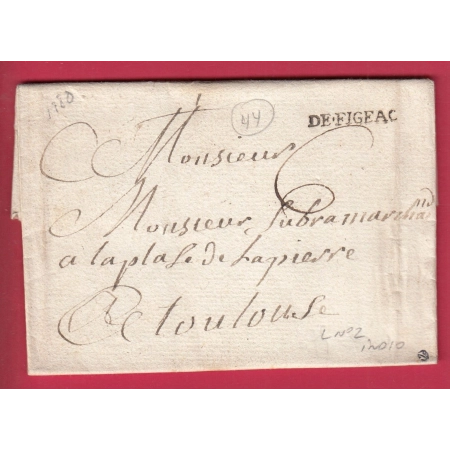 1780
44
DE·FIGEAC
Monsieur
Monsieur Subra marchand
a la plase de la pierre
A toulouse
L N°2
IND 10